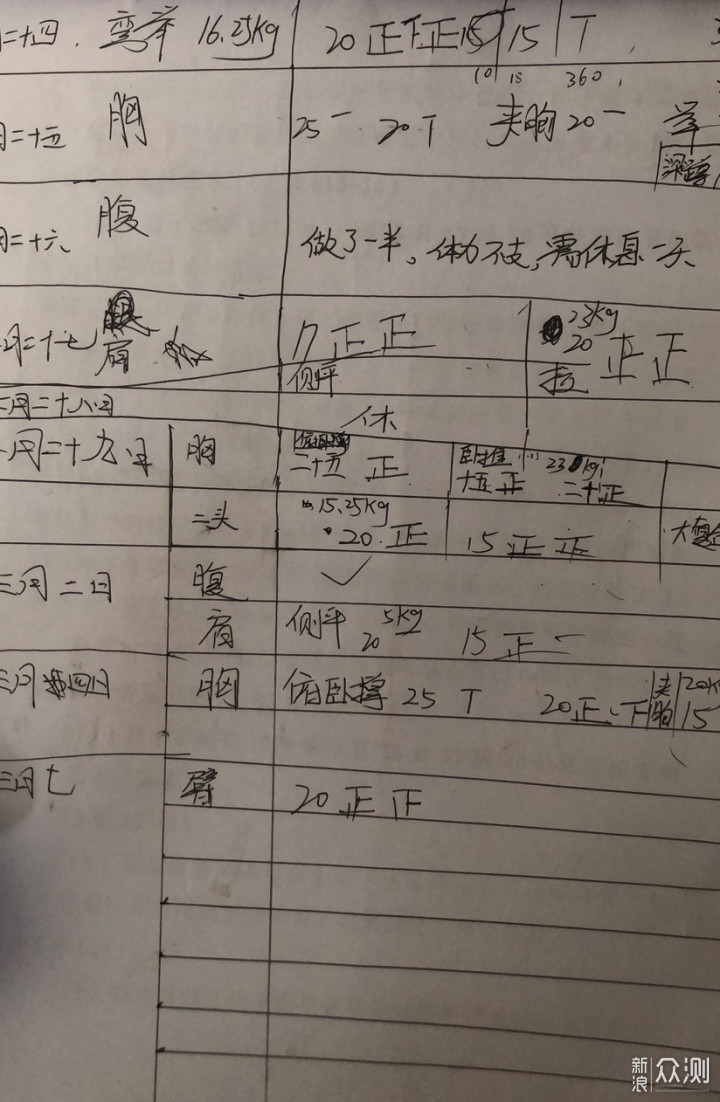 二十四. 弯举 16.25kg 20 正 正 15 15 T
10 15 360
月二十五 胸 25 一 20 T 夹胸 20 一 举
深蹲
月二十六 腹 做了一半,体力不支,需休息一天
二月二十七 肩 17 正 正 23kg 20 正 正
侧平 拉
二月二十八日 休
二月二十九日 胸 俯卧撑 二十五 正 卧推 十五 正 23kg 二十 正
二头 15.25kg 20 正 15 正 正
三月二日 腹 ✓
肩 侧平 20 5kg 15 正 二
三月四日 胸 俯卧撑 25 T 20 正 下 夹胸 20k 15
三月七 臂 20 正 正
新浪 众测